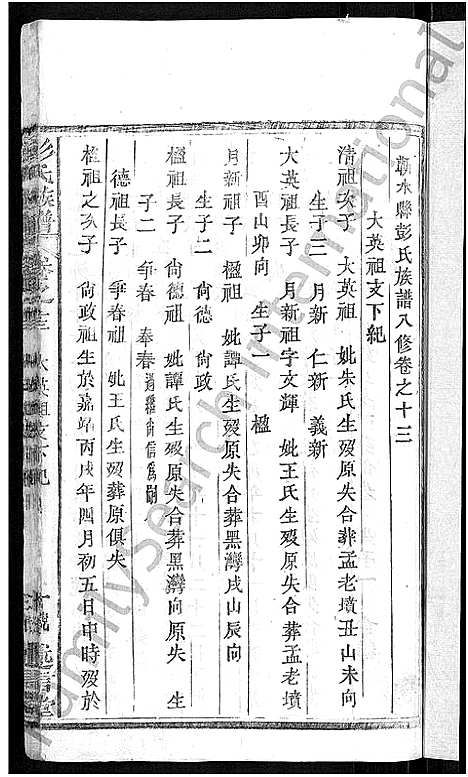 蘄水縣彭氏族譜八修卷之十三
大英祖支下紀
清祖次子 大英祖 妣朱氏生歿原失合葬孟老墳丑山未向
生子三 月新 仁新 義新
大英祖長子 月新祖字文輝 妣王氏生歿原失合葬孟老墳
酉山卯向 生子一 楹
月新祖子 楹祖 妣譚氏生歿原失合葬黑灣戌山辰向
生子二 尙德 尙政
楹祖長子 尙德祖 妣譚氏生歿原失合葬黑灣向原失 生
子二 爭春 奉春
德祖長子 爭春祖 妣王氏生歿葬原俱失
楹祖之次子 尙政祖生於嘉靖丙戌年四月初五日申時歿於
彭氏族譜 卷之十三 大英祖支下紀
FamilySearch International